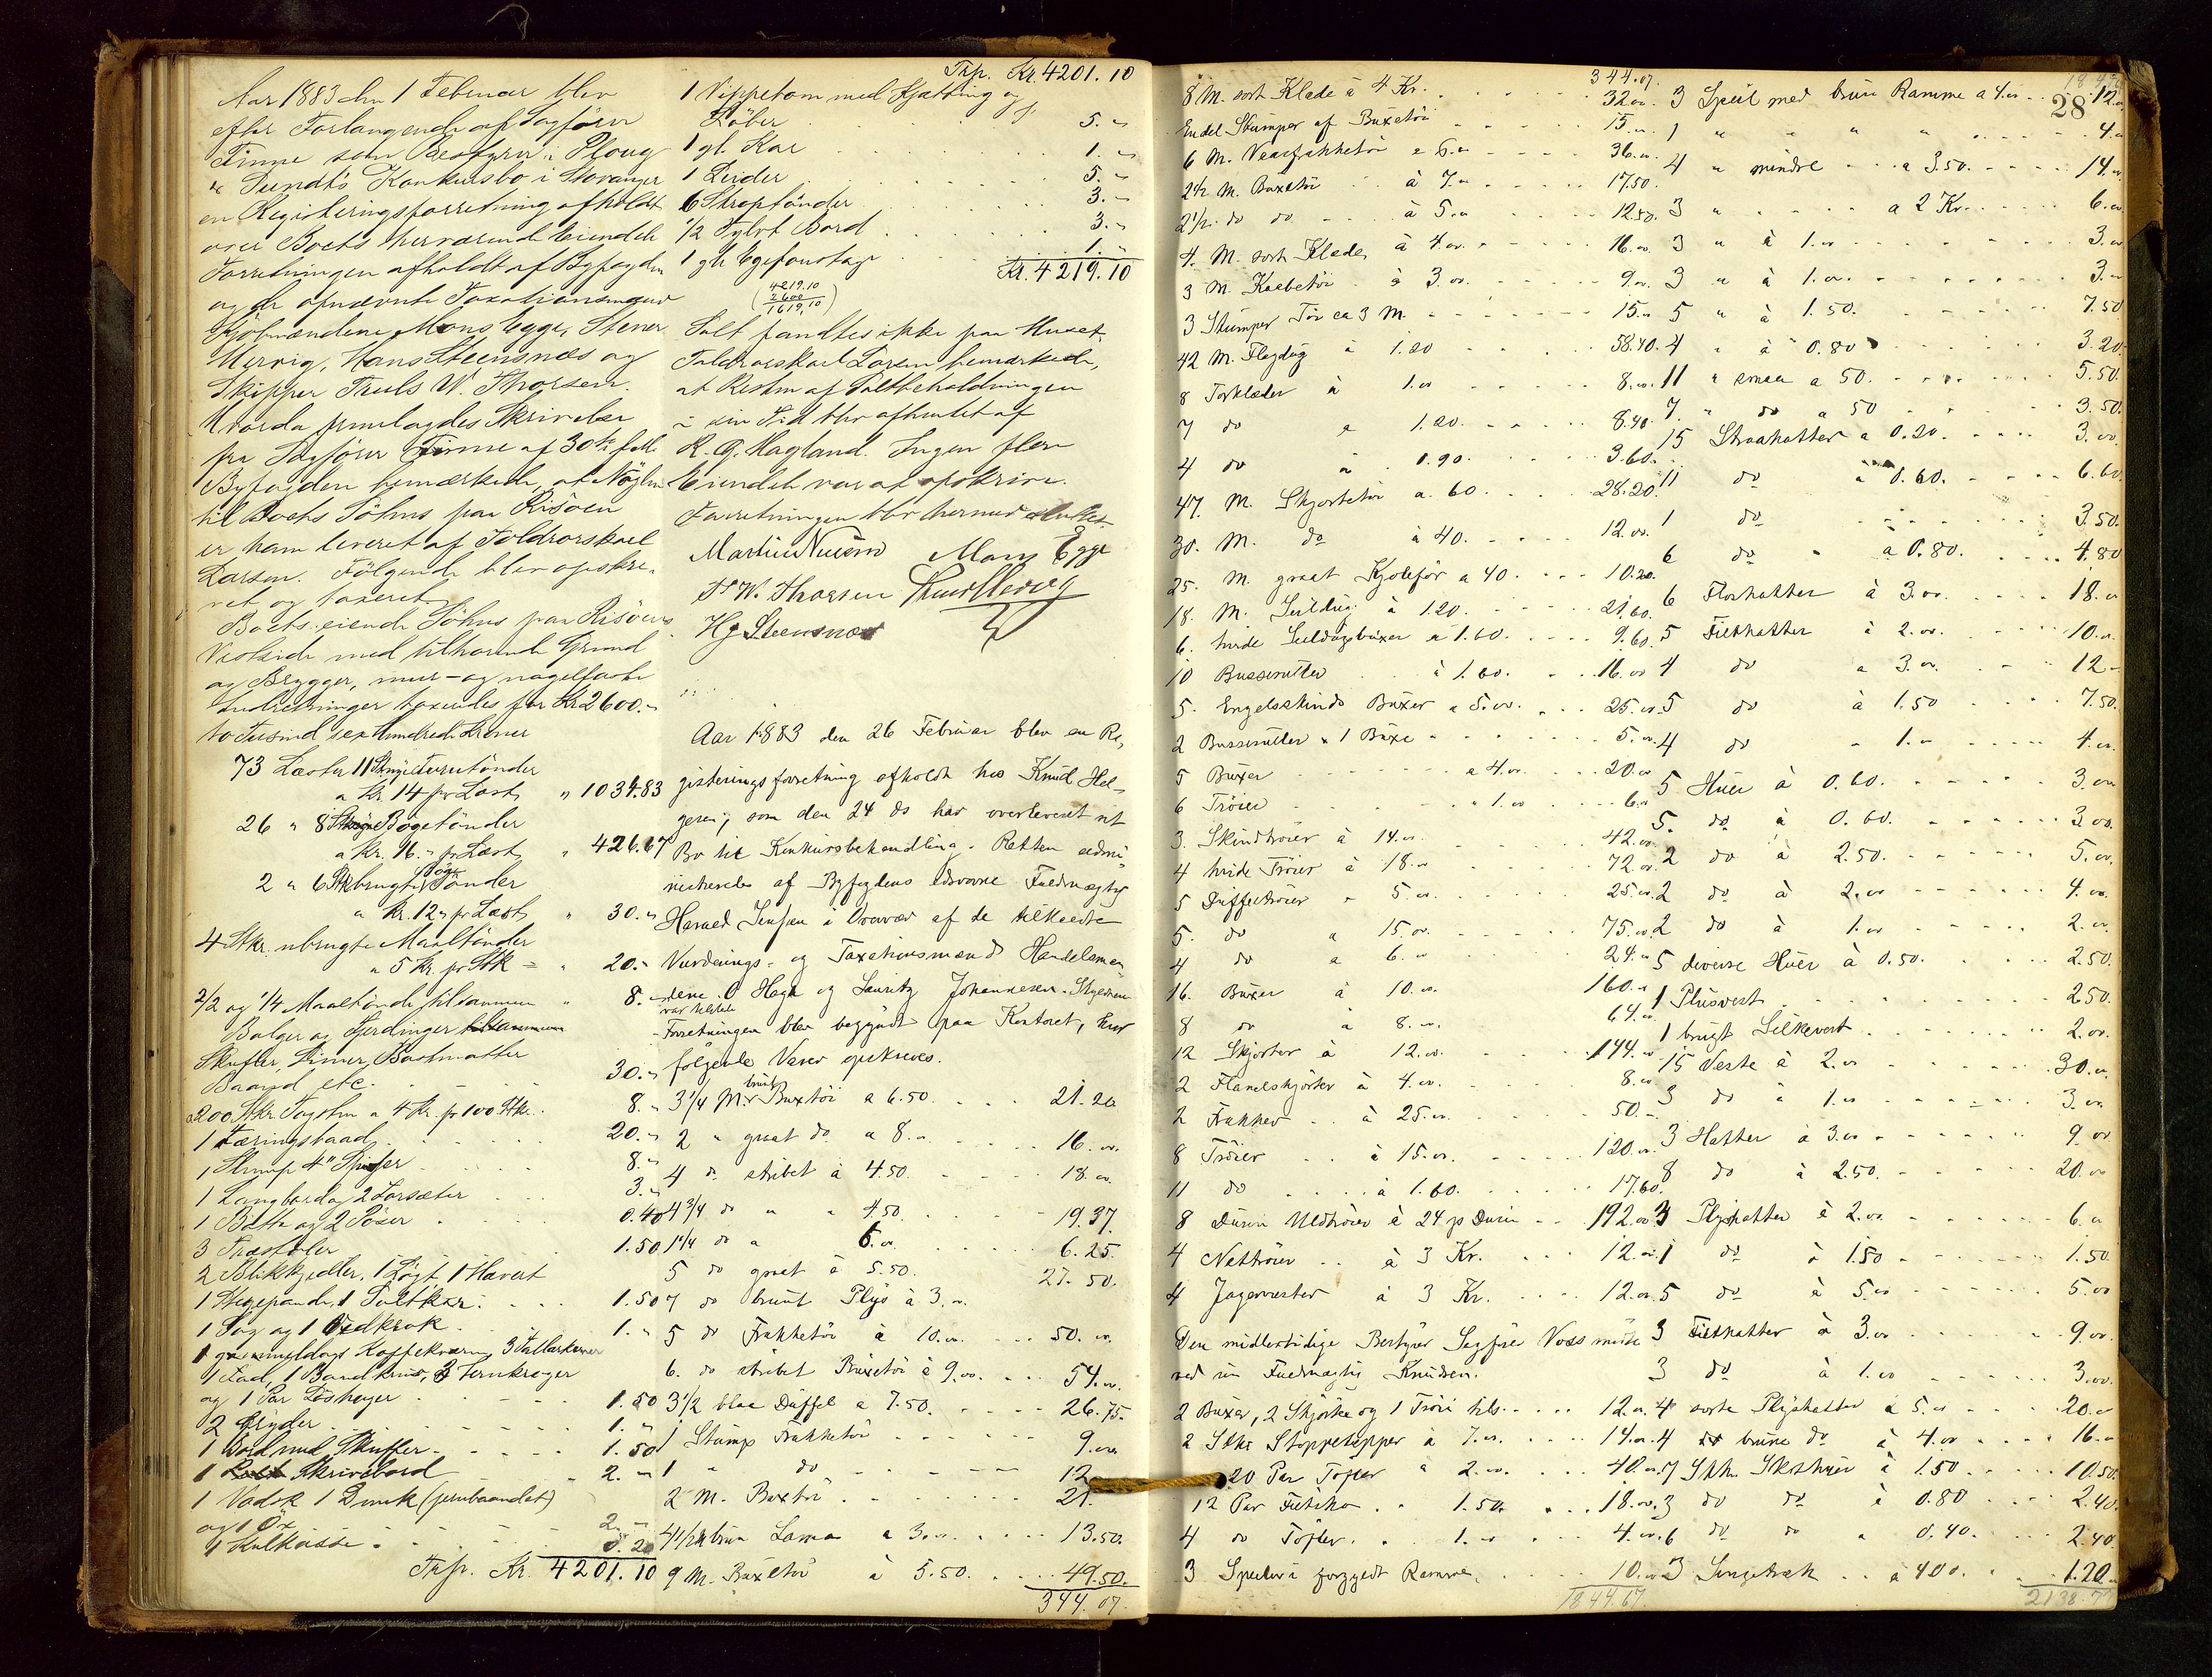 Aar 1883 den 1 Februar blev
efter Forlangende af Sagförer
Finne som Bestyrer i Ploug
& Sundt's Konkursbo i Stavanger
en Registreringsforretning afholdt
over Boets herværende Eiendele
Forretningen afholdt af Byfogden
og de opnævnte Taxationsmænd
Kjöbmændene Mons Egge, Stener
Mervig, Hans Steensnæs og
Skipper Truls W. Thorsen.
Hvorda fremlagdes Skrivelse
fra Sagförer Finne af 30te f. M.
Byfogden bemærkede, at Nöglen
til Boets Söhus paa Risöen
er ham leveret af Toldrorskarl
Larsen. Fölgende blev opskre-
vet og taxeret
Boets eiende Söhus paa Risöens
Vestside med tilhörende Grund
og Brygger, mur- og nagelfaste
Indretninger taxeredes for Kr 2600.-
to Tusind sex Hundrede Kroner
73 Læster 11 Stk nye Furutönder
a Kr. 14 pr Læst " 1034.83
26 " 8 Stk nye Bögetönder
a Kr. 16.- pr Læst " 426.67
2 " 6 Stk brugte Böge Tönder
a Kr. 12 " pr Læst " 30.-
4 Stkr. ubrugte Maaltönder
a 5 Kr. pr Stk = " 20.-
2/2 og 1/4 Maaltönde tilsammen " 8.-
Balger og Fjerdinger
Skufler, Limer, Bastmatter
Baand etc. 30.-
200 Stkr Tagsten a 4 Kr. pr 100 Stk. 8.-
1 Færingsbaad 20.-
1 Stump 4" 8.-
1 Langbord og 2 Forsæter 3.-
1 Bötte og 2 Pöser 0.40
3 Træstoler 1.50
2 Blikkjedler, 1 Lögt, 1 Havert
1 Stegepande, 1 Saltkar. 1.50
1 Sag og 1 Vedkrak 1.-
1 gammeldags Kaffekværn, 3 Tallerkener
1 Fad, 1 Vandkrus, 3 Jernkroger
og 1 Par 1.50
2 Gryder 1.-
1 Bord med Skuffer 1.50
1 Skrivebord 2.-
1 1 Dunk (jernbaandet)
og 1 Öx 2.-
1 Kulkasse 0.20
Trsp. Kr. 4201.10
Trsp. Kr. 4201.10
1 Vippetom med Kjætting og
Löber 5.-
1 gl. Kar 1.-
1 5.-
6 Straptönder 3.-
1/2 Tylvt Bord 3.-
1 gl. Egefoustage 1.-
Kr. 4219.10
(4219.10
2600
1619,10)
Salt fandtes ikke paa Huset.
Toldrorskarl Larsen bemærkede,
at Resten af Saltbeholdningen
i sin Tid blev afhentet af
R. G. Hagland. Ingen flere
Eiendele var at opskrive.
Forretningen blev hermed sluttet.
Mons Egge
T. W. Thorsen
Hg Steensnæs
Aar 1883 den 26 Februar blev en Re-
gistreringsforretning afholdt hos Knud Hel-
gesen, som den 24 ds har overleveret sit
Bo til Konkursbehandling. Retten admi-
nistreredes af Byfogdens edsvorne Fuldmægtig
Harald Jensen i Overvær af de tilkaldte
Vurderings- og Taxationsmænd Handelsmæn-
dene O Haga og Lauritz Johannesen. Skyldneren
var tilstede
Forretningen blev begyndt paa Kontoret, hvor
fölgende Varer opskreves.
3 1/4 M. brunt Buxtöi a 6.50. 21.20
2 " graat do a 8.- 16.00
4 do stribet à 4.50 18.00
4 3/4 do " " 4.50 19.37.
1 1/4 do a 5.00 6.25.
5 do graat à 5.50. 27.50.
7 do brunt Plys à 3.00
5 do Frakketöi à 10.00 50.00
6. do stribet Buxetöi à 9.00. 54.00
3 1/2 blaa Düffel a 7.50. 26.75.
1 Stump Frakketöi 9.00
1 " do 12
2 M. Buxtöi 21.
4 1/2 M brun Lama a 3.00 13.50.
9 M. Buxetöi à 5.50. 49.50.
344.07.
344.07.
8 M. sort Klæde à 4 Kr. 32.00
Endel Stumper af Buxetöi 15.00
6 M. Vaarfrakketöi a 6.00 36.00
2 1/2 M. Buxetöi à 7.00 17.50.
2 1/2 do do à 5.00 12.50.
4. M. sort Klæde à 4.00 16.00
3 M. Kaabetöi à 3.00. 9.00
3 Stumper Töi ca 3 M. 15.00
42 M. Flagdug à 1.20 58.40.
8 Torklæder à 1.00 8.00
7 do a 1.20. 8.40.
4 do à 0.90. 3.60.
47. M. Skjortetöi a. 60. 28.20.
30. M. do à 40. 12.00.
25. M. graat Kjolefór a 40. 10.20.
18. M. Seildug à 1.20. 21.60.
6. hvide Seildugsbuxer a 1.60. 9.60.
10 Busseruller à 1.60. 16.00
5. Engelskinds Buxer a 5.00. 25.00.
2 Busseruller & 1 Buxe 5.00.
5 Buxer a 4.00. 20.00
6 Tröier a 1.00 6.00
3. Skindtröier à 14.00. 42.00.
4 hvide Tröier à 18.00 72.00.
5 Düffeltröier " 5.00. 25.00.
5. do a 15.00. 75.00.
4 do a 6.00 24.00
16. Buxer à 10.00. 160.00
8 do à 8.00. 64.00
12 Skjorter à 12.00. 144.00
2 Flanelskjorter à 4.00. 8.00
2 Frakker à 25.00. 50.-
8 Tröier à 15.00. 120.00
11 do à 1.60. 17.60.
8 Dusin Uldtröier à 24 pr Dusin 192.00
4 Nettröier à 3 Kr. 12.00.
4 Jagervester à 3 Kr. 12.00.
Den midlertidige Bestyrer Sagfører Voss mödte
ved sin Fuldmægtig Knudsen.
2 Buxer, 2 Skjorter og 1 Tröie tils. 12.00.
2 Stkr Stoppetepper à 7.00. 14.00.
20 Par Töfler à 2.00. 40.00.
12 Par Filtsko " 1.50. 18.00.
4 do Töfler. 1.00 4.00.
3 Speile i forgyldt Ramme, 10.00
1844.67.
28
3 Speil med brun Ramme a 4.00 12.00
1 " " " " 4.00
4 " mindre a 3.50. 14.00
3 " " a 2 Kr. 6.00
3 " à 1.00 3.00
3 " à 1.00 3.00
5 " à 1.50. 7.50
4 " à 0.80 3.20
11 " smaa a 50. 5.50.
7. " do a 50 3.50.
15 Straahatter a 0.20. 3.00.
11 do a 0.60. 6.60
1 do 3.50.
6 do a 0.80. 4.80
6 Floshatter à 3.00. 18.00
5 Filthatter à 2.00. 10.00.
4 do a 3.00. 12-
5 do à 1.50 7.50.
4 do a 1.00 4.00.
5 Huer à 0.60. 3.00
5. do à 0.60. 3.00.
2 do à 2.50. 5.00.
2 do à 2.00 4.00.
2 do à 1.00 2.00.
5 diverse Huer à 0.50. 2.50.
1 Plüsvest 2.50.
1 brugt Silkevest 2.00.
15 Veste à 2.00 30.00.
3 do à 1.00 3.00.
3 Hatter à 3.00 9.00
8 do à 2.50. 20.00
3 Plyshatter à 2.00. 6.00
1 do à 1.50 1.50.
5 do à 5.00 5.00
3 Filthatter à 3.00 9.00.
3 do à 1.00 3.00.
4 sorte Plyshatter à 5.00 20.00
4 brune do à 4.00 16.00
7 Stkr. à 1.50. 10.50.
3 do do à 0.80 2.40.
6 do do a 0.40. 2.40
3 à 400. 1.20
2138.77